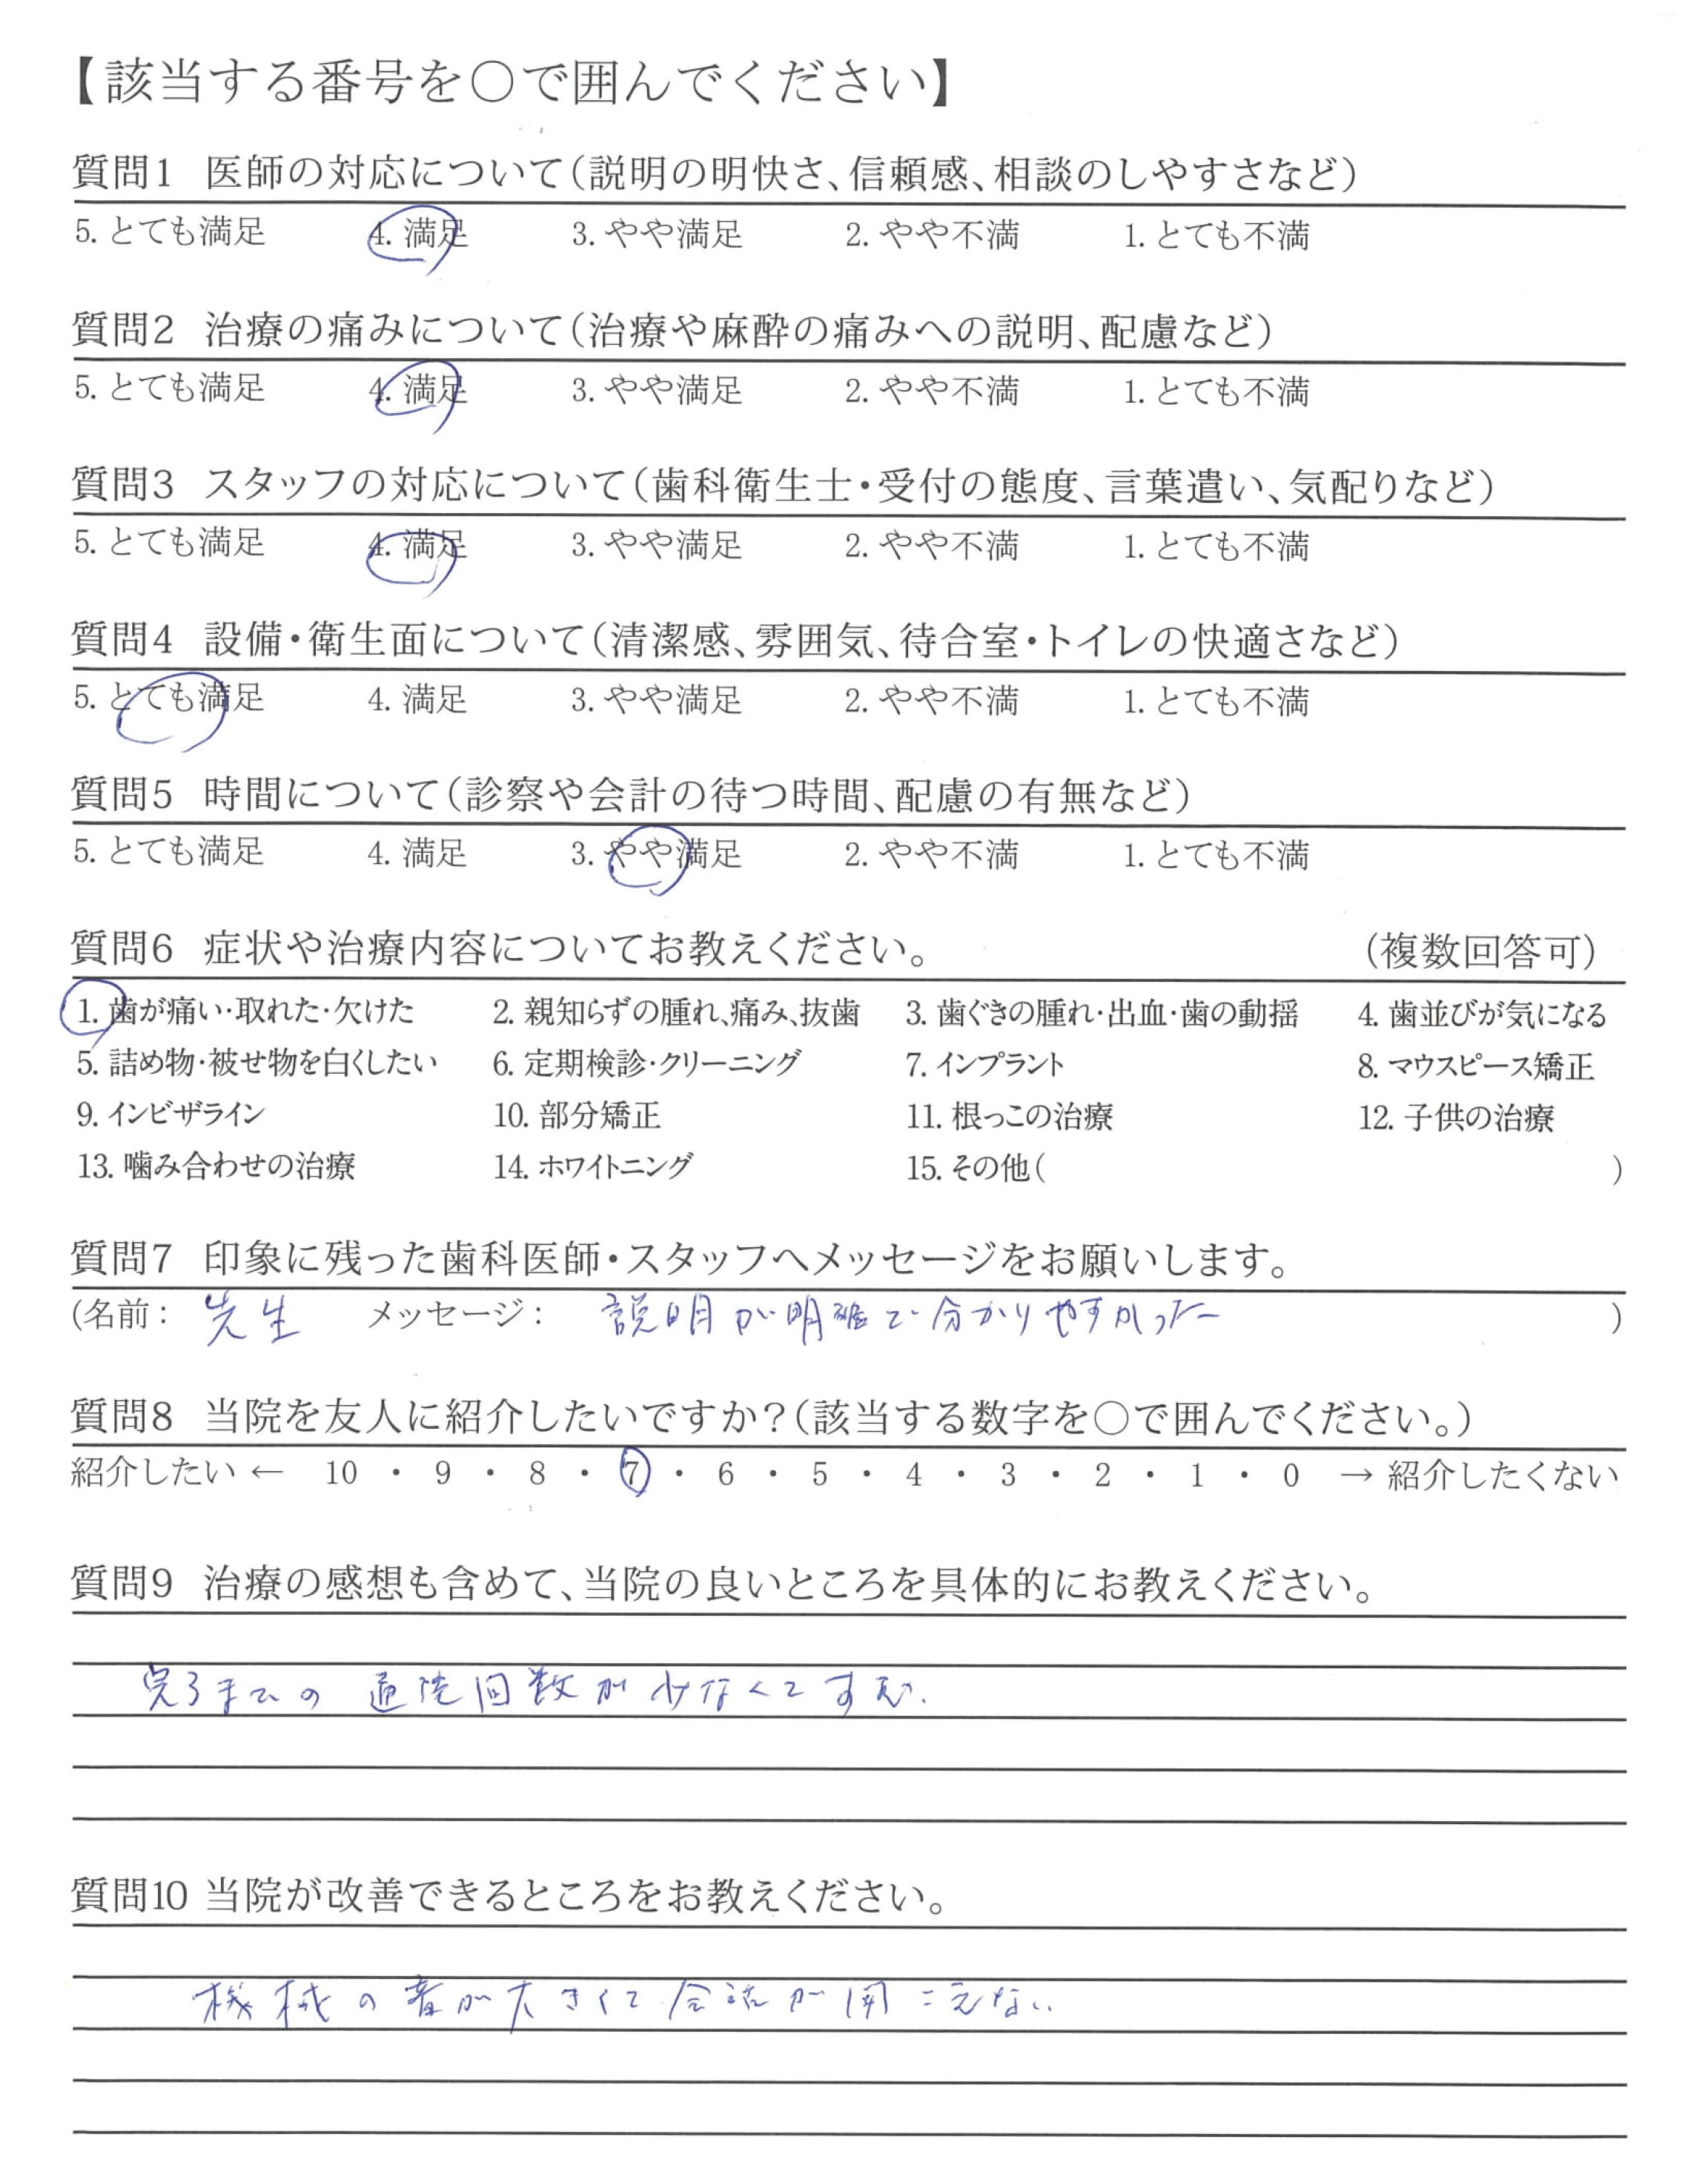 【該当する番号を○で囲んでください】
質問1 医師の対応について(説明の明快さ、信頼感、相談のしやすさなど)
5. とても満足 4. 満足 3. やや満足 2. やや不満 1. とても不満
質問2 治療の痛みについて(治療や麻酔の痛みへの説明、配慮など)
5. とても満足 4. 満足 3. やや満足 2. やや不満 1. とても不満
質問3 スタッフの対応について(歯科衛生士・受付の態度、言葉遣い、気配りなど)
5. とても満足 4. 満足 3. やや満足 2. やや不満 1. とても不満
質問4 設備・衛生面について(清潔感、雰囲気、待合室・トイレの快適さなど)
5. とても満足 4. 満足 3. やや満足 2. やや不満 1. とても不満
質問5 時間について(診察や会計の待つ時間、配慮の有無など)
5. とても満足 4. 満足 3. やや満足 2. やや不満 1. とても不満
質問6 症状や治療内容についてお教えください。 (複数回答可)
1. 歯が痛い・取れた・欠けた 2. 親知らずの腫れ、痛み、抜歯 3. 歯ぐきの腫れ・出血・歯の動揺 4. 歯並びが気になる
5. 詰め物・被せ物を白くしたい 6. 定期検診・クリーニング 7. インプラント 8. マウスピース矯正
9. インビザライン 10. 部分矯正 11. 根っこの治療 12. 子供の治療
13. 噛み合わせの治療 14. ホワイトニング 15. その他( )
質問7 印象に残った歯科医師・スタッフへメッセージをお願いします。
(名前: 先生 メッセージ: 説明が明確で分かりやすかった )
質問8 当院を友人に紹介したいですか?(該当する数字を○で囲んでください。)
紹介したい ← 10 ・ 9 ・ 8 ・ 7 ・ 6 ・ 5 ・ 4 ・ 3 ・ 2 ・ 1 ・ 0 → 紹介したくない
質問9 治療の感想も含めて、当院の良いところを具体的にお教えください。
完了までの通院回数が少なくてすむ.
質問10 当院が改善できるところをお教えください。
機械の音が大きくて会話が聞こえない